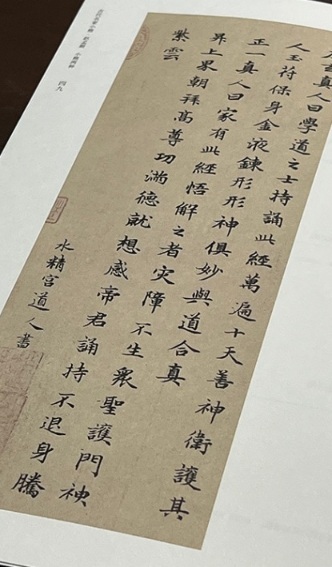 真人曰學道之士持誦此經萬遍十天善神衛護其
人玉符保身金液鍊形形神俱妙與道合真
正一真人曰家有此經悟解之者災障不生衆聖護門神
昇上界朝拜高尊功滿德就想感帝君誦持不退身騰
紫雲
水精宮道人書
四九